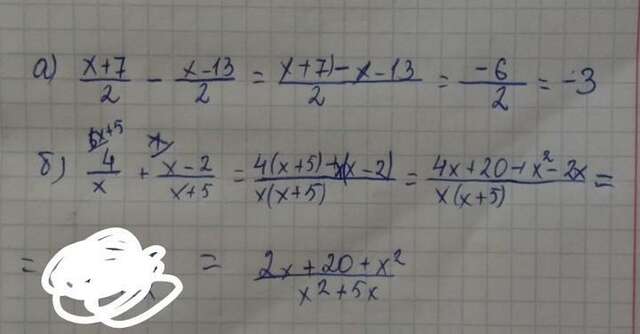 а) x+7/2 - x-13/2 = x+7)-x-13/2 = -6/2 = -3
б) 4/x + x-2/x+5 = 4(x+5)+x(x-2)/x(x+5) = 4x+20+x²-2x/x(x+5) =
= = 2x+20+x²/x²+5x